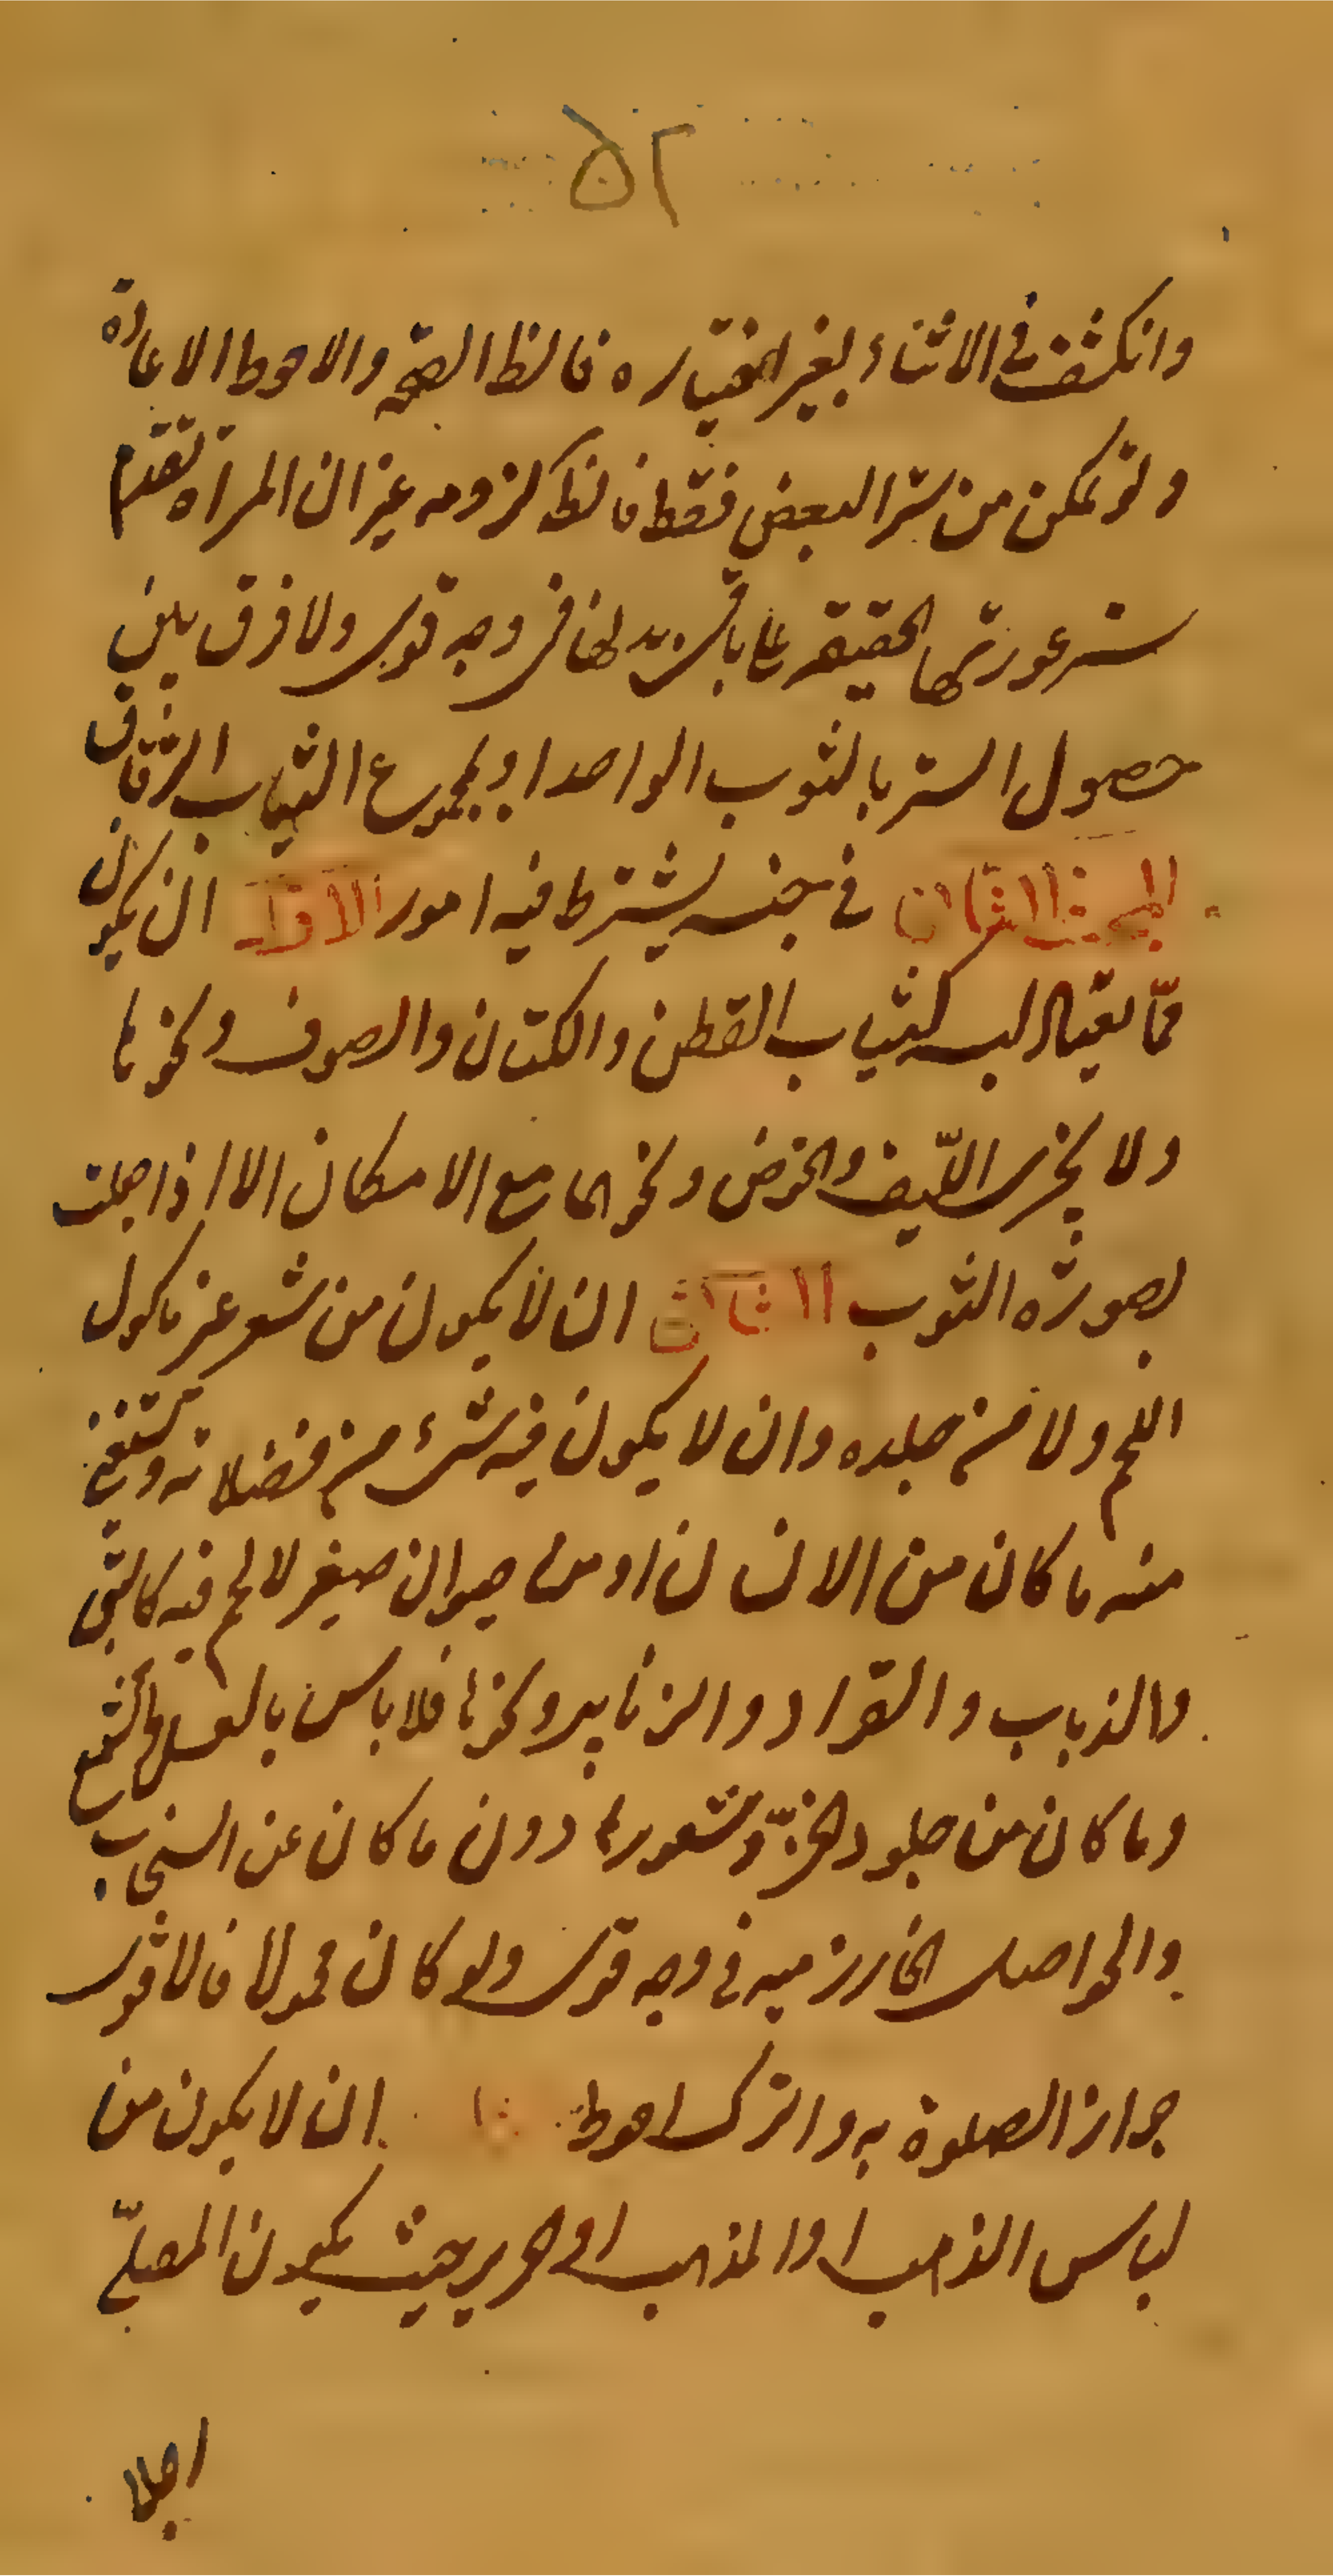 ٥٢
وانكشف فى الاثناء بغير اختياره فالظ الصحه والاحوط الاعادة
ولو تمكن من ستر البعض فقط فالظ لزومه غير ان المراة تقدم
ستر عورتها الحقيقه على باقى بدنها فى وجه قوى ولا فرق بين
حصول الستر بالثوب الواحد او بمجموع الثياب الرقاق
المبحث الثانى فى جنسه يشترط فيه امور الاول ان يكون
مما يعتاد لبسه كثياب القطن والكتان والصوف ونحوها
ولا يجزى الليف والخوص ونحوهما مع الامكان الا اذا جعلت
بصورة الثوب الثانى ان لا يكون من شعر غير ماكول
اللحم ولا من جلده وان لا يكون فيه شىء من فضلاته ويستثنى
منه ما كان من الانسان او من حيوان صغير لا لحم فيه كالبق
والذباب والقراد والزنابير ونحوها فلا باس بالعسل والشمع
وما كان من جلود الخز وشعورها دون ما كان عن السنجاب
والحواصل الخارزميه فى وجه قوى ولو كان محمولا فالاقوى
جواز الصلوة به والترك احوط ان لا يكون من
لباس الذهب او المذهب او الحرير بحيث يكون المصلى